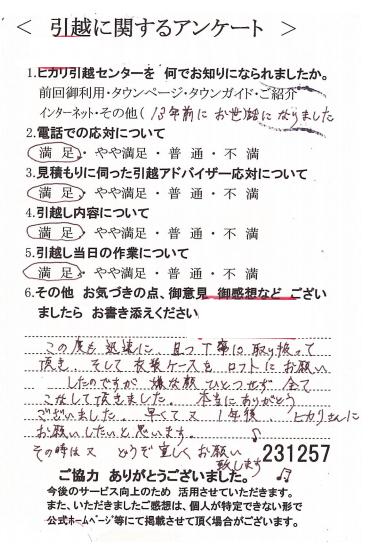 ＜ 引越に関するアンケート ＞
1.ヒカリ引越センターを 何でお知りになられましたか。
前回御利用・タウンページ・タウンガイド・ご紹介
インターネット・その他( 13年前に お世話に なりました
2.電話での応対について
満 足・やや満足・普 通・不 満
3.見積もりに伺った引越アドバイザー応対について
満 足・やや満足・普 通・不 満
4.引越し内容について
満 足・やや満足・普 通・不 満
5.引越し当日の作業について
満 足・やや満足・普 通・不 満
6.その他 お気づきの点、御意見 御感想など ござい
ましたら お書き添えください
この度も 迅速に 且つ丁寧に取り扱って
頂き、そして 衣装ケースを ロフトに お願い
したのですが 嫌な顔ひとつせず 全て
こなして頂きました。本当にありがとう
ございました。早くて又 1年後、ヒカリさんに
お願いしたいと思います。
その時は又 どうぞ宜しくお願い
致します♪
231257
ご協力 ありがとうございました。
今後のサービス向上のため 活用させていただきます。
また、いただきましたご感想は、個人が特定できない形で
公式ホームページ等にて掲載させて頂く場合がございます。